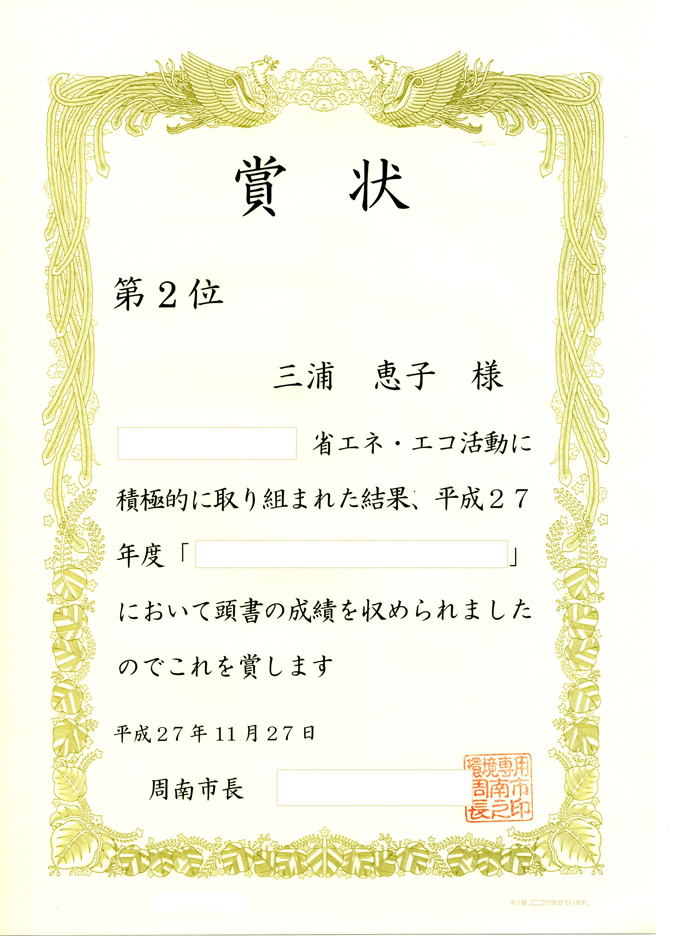 賞 状
第2位
三浦 恵子 様
省エネ・エコ活動に
積極的に取り組まれた結果、平成27
年度「 」
において頭書の成績を収められました
のでこれを賞します
平成27年11月27日
周南市長
環境専用
周南市
長之印
※1部、□で伏せています。